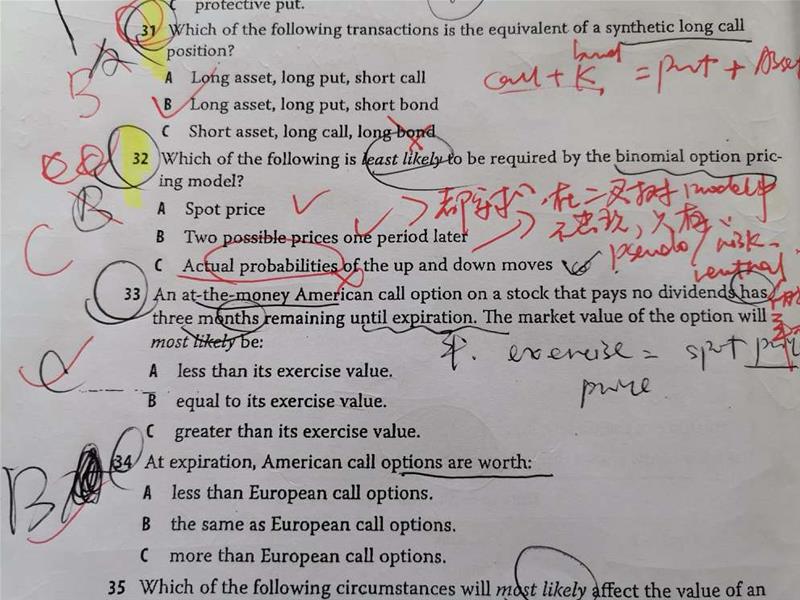 C protective put.
31 Which of the following transactions is the equivalent of a synthetic long call
position?
A Long asset, long put, short call
B Long asset, long put, short bond
C Short asset, long call, long bond
A
B
bond
call + K = put + Asset
32 Which of the following is least likely to be required by the binomial option pric-
ing model?
A Spot price
B Two possible prices one period later
C Actual probabilities of the up and down moves
B
C
在二叉树 model中
pseudo / risk-
33 An at-the-money American call option on a stock that pays no dividends has
three months remaining until expiration. The market value of the option will
most likely be:
A less than its exercise value.
B equal to its exercise value.
C greater than its exercise value.
exercise = spot price
price
C
34 At expiration, American call options are worth:
A less than European call options.
B the same as European call options.
C more than European call options.
B
35 Which of the following circumstances will most likely affect the value of an